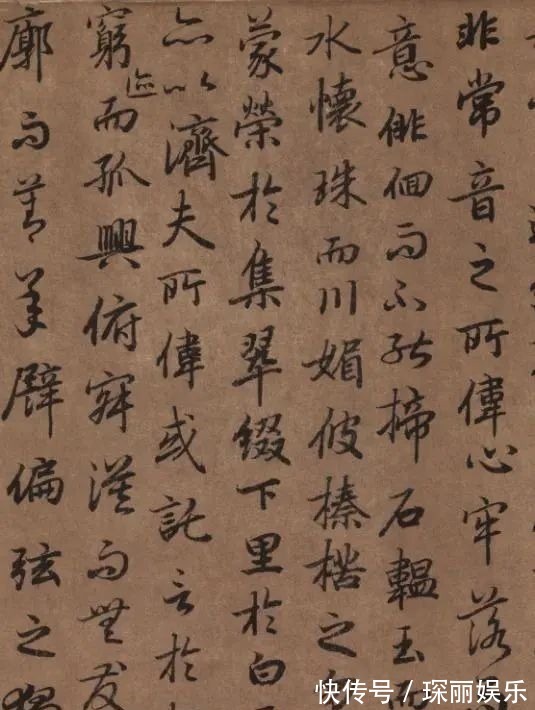 非常音之所偉心牢落
意俳佪而不能揥石韞玉而
水懷珠而川媚彼榛楛之
蒙榮於集翠綴下里於白
亦以濟夫所偉或託言於
窮迹而孤興俯寂漠而無友
廓而莫承譬偏弦之獨
快传号／琛丽娱乐